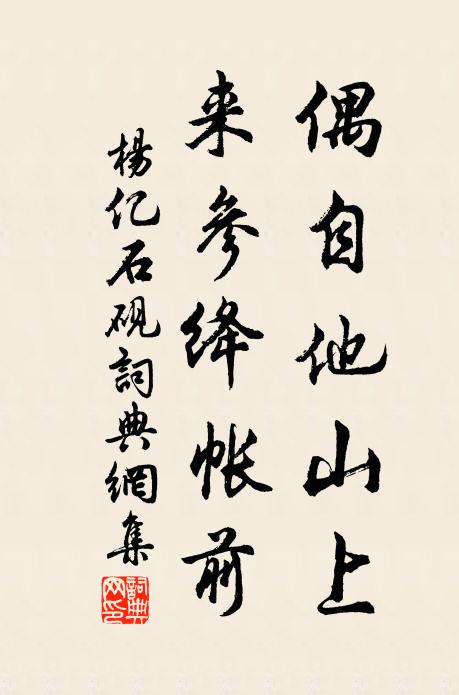 偶自他山上
来參绛帐前
楊亿石砚詞典網集
詞典網印